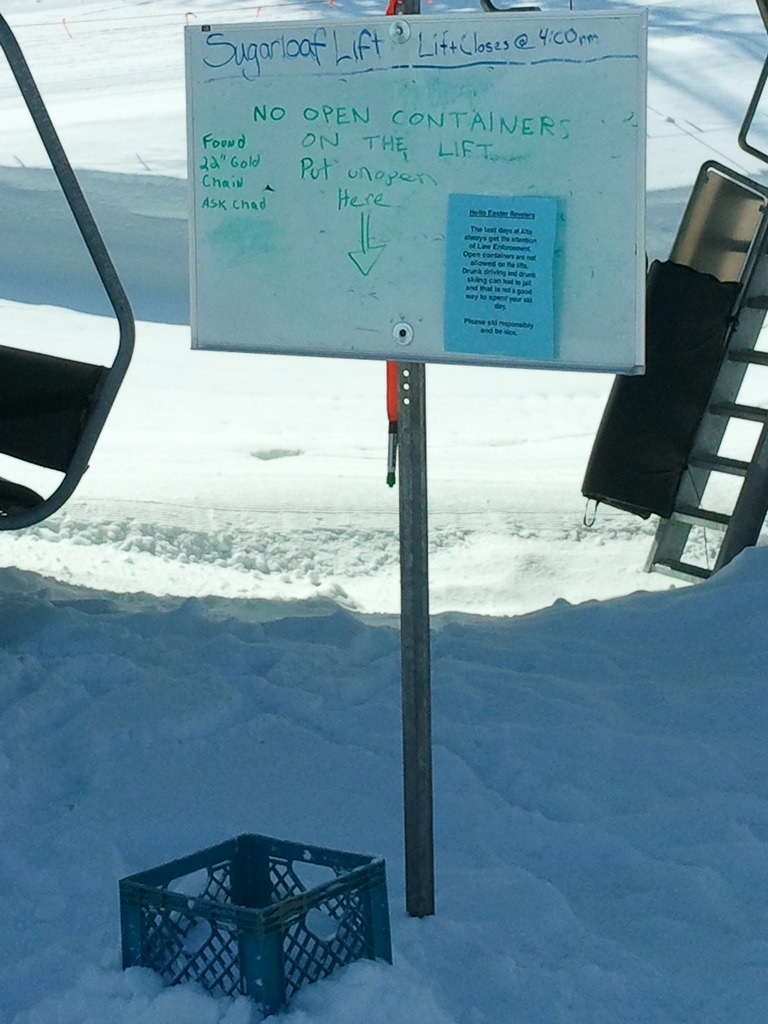 Sugarloaf Lift Lift Closes @ 4:00pm
NO OPEN CONTAINERS
ON THE LIFT
Put unopen
Here
Found
22" Gold
Chain
Ask Chad
Hello Easter Revelers
The last days at Alta
always get the attention
of Law Enforcement.
Open containers are not
allowed on the lifts.
Drunk driving and drunk
skiing can lead to jail
and that is not a good
way to spend your ski
day.
Please ski responsibly
and be nice.